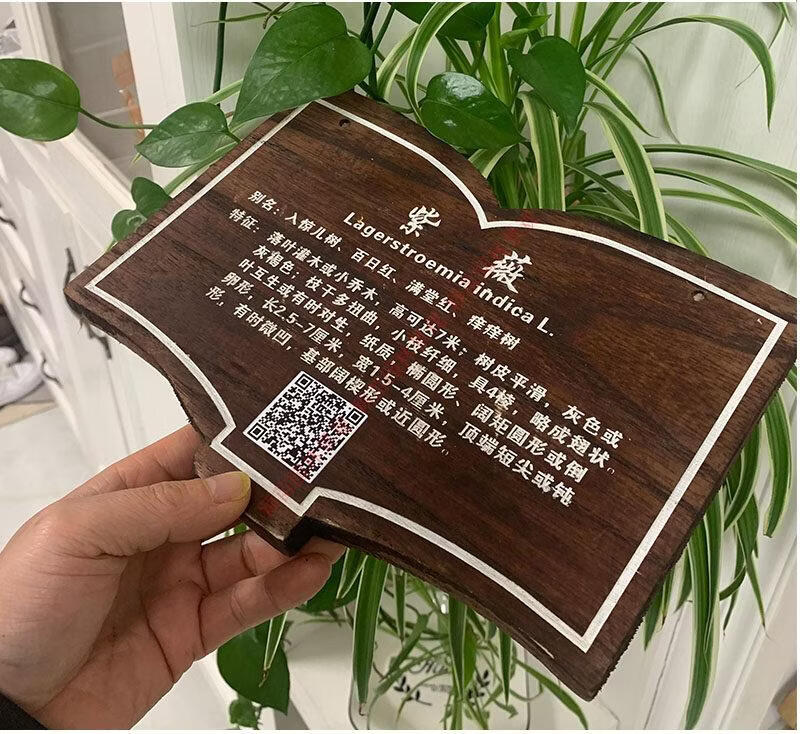 紫薇
Lagerstroemia indica L.
别名：入惊儿树、百日红、满堂红、痒痒树
特征：落叶灌木或小乔木，高可达7米；树皮平滑，灰色或
灰褐色；枝干多扭曲，小枝纤细，具4棱，略成翅状。
叶互生或有时对生，纸质，椭圆形、阔矩圆形或倒
卵形，长2.5-7厘米，宽1.5-4厘米，顶端短尖或钝
形，有时微凹，基部阔楔形或近圆形。